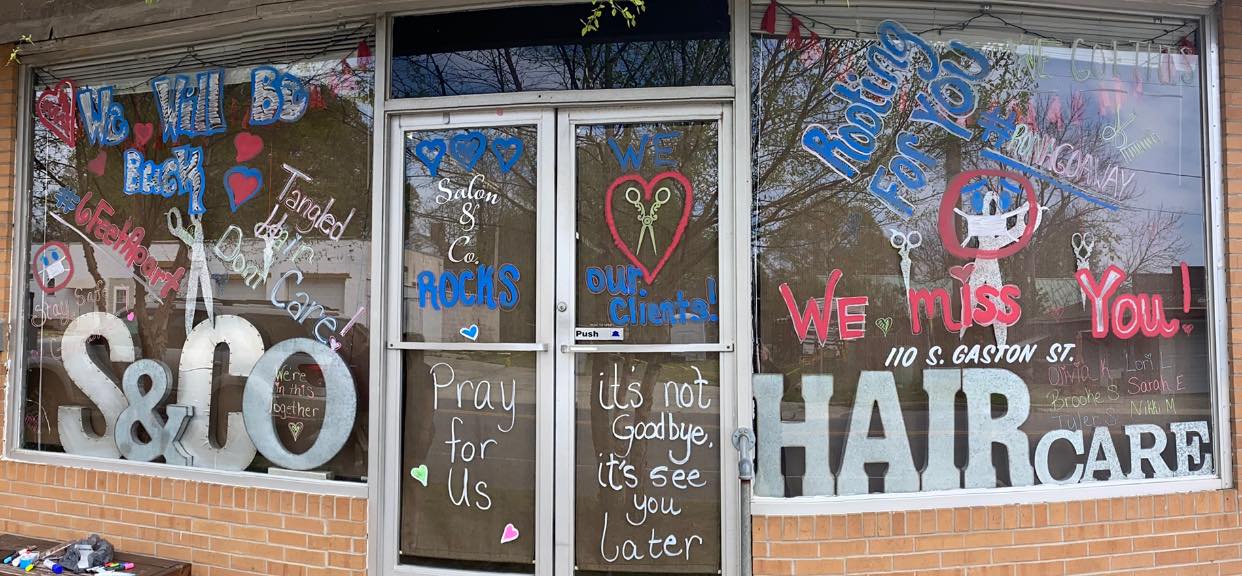 We Will Be
Back
#6FeetApart
Stay Safe
Tangled
Hair
Dont
Care!
S&CO
We're
in this
together
Salon
&
Co.
ROCKS
Pray
for
Us
WE
our
clients!
Push
it's not
Goodbye,
it's see
you
later
Rooting
For You
WE GOT THIS
#RONAGOAWAY
WE miss You!
110 S. GASTON ST.
Olivia K
Lori L
Brooke S
Sarah E
Tyler S
Nikki M
HAIR CARE